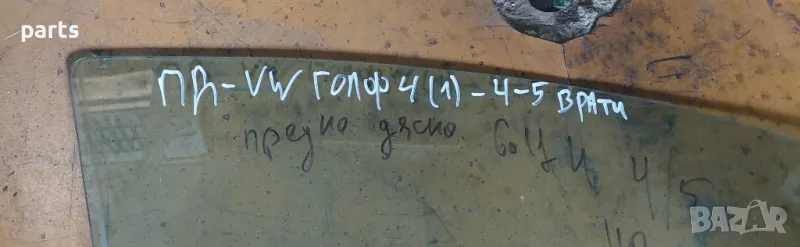 parts
ПД-VW ГОЛФ 4 (1) - 4-5 ВРАТИ
предно дясно
4/5
BAZAR